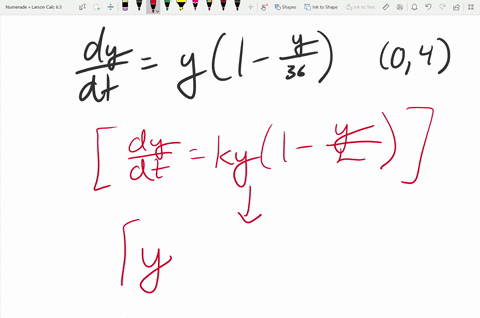 Numerade + Larson Calc 6.3
Shapes Ink to Shape Ink to Text Ink to Math
dy/dt = y(1 - y/36) (0,4)
[dy/dt = ky(1 - y/L)]
↓
[y